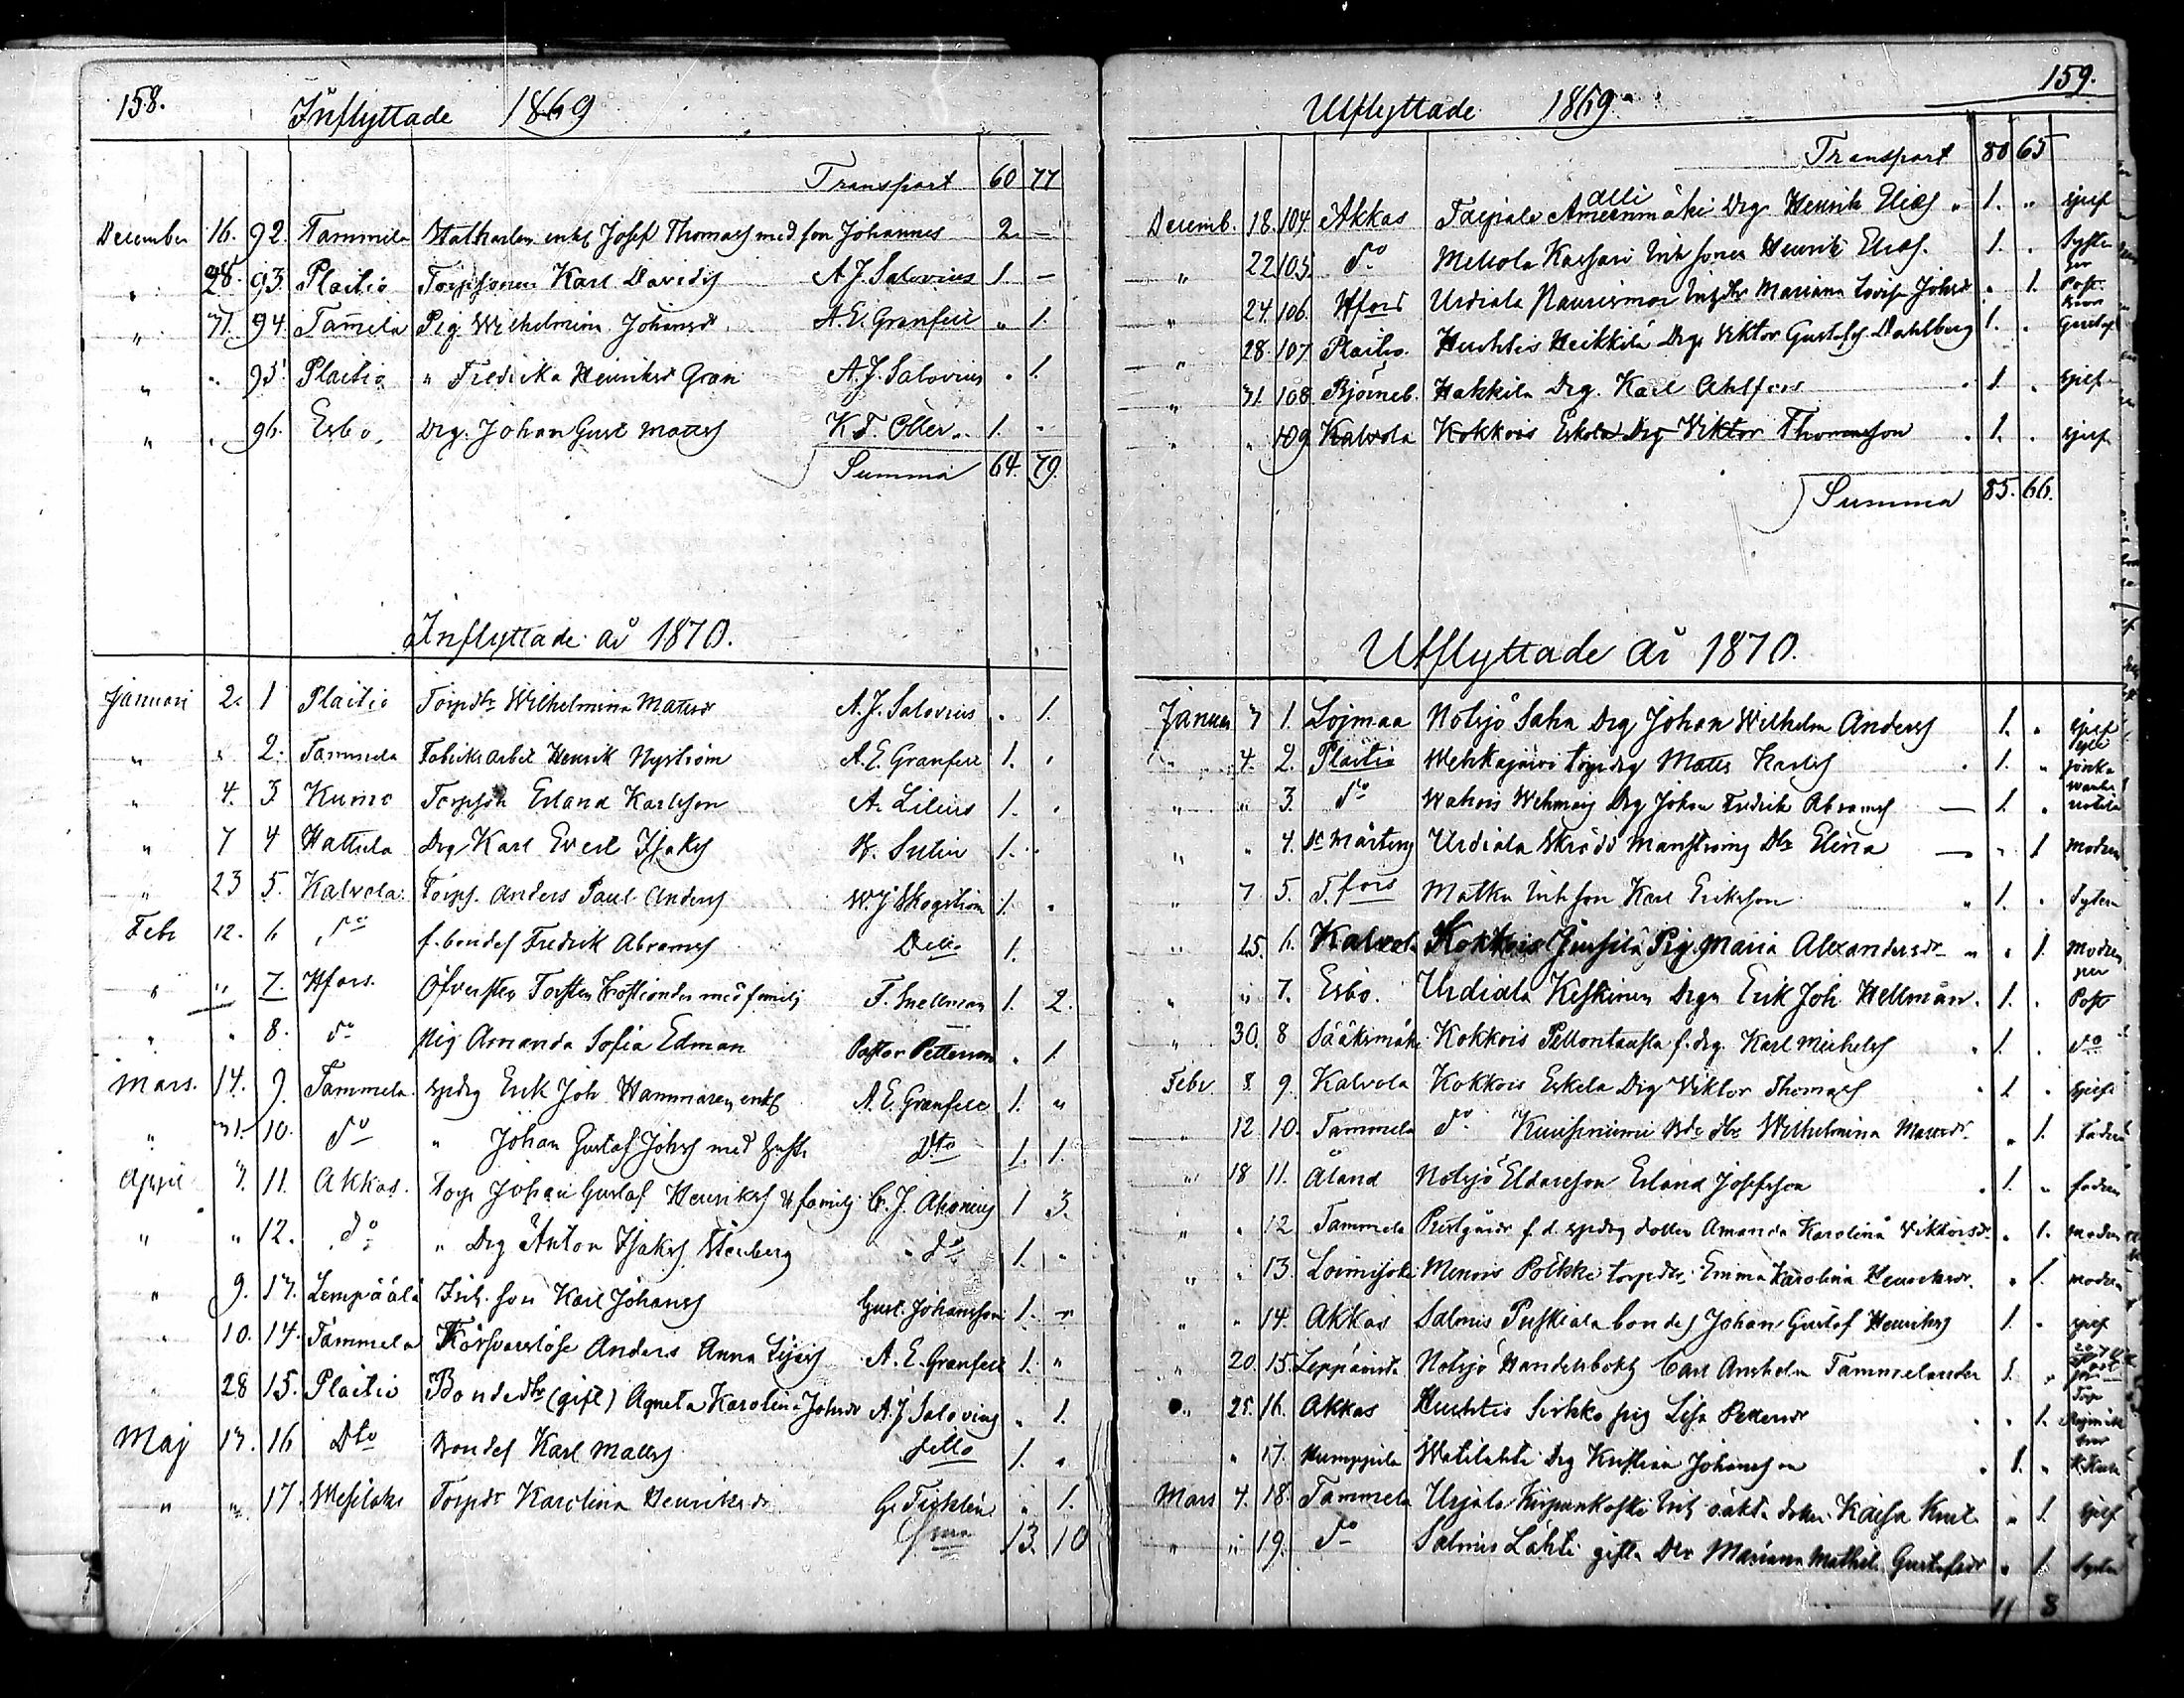 158.
Inflyttade 1869
Transport 60 77
December 16. 92. Tammela Statkarlen enkl Josef Thomass med son Johannes 2. —
" 28. 93. Plaitis Torpsonen Karl Davids A. J. Salovius 1. —
" 31. 94. Tam̄ela Pig. Wilhelmina Johansdr A. E. Granfelt " 1.
" " 95. Plaitis " Fredrika Henriksdr Gran A. J. Salovius . 1.
" " 96. Esbo, Drg. Johan Gust Matts K. T. 1. "
Summa 64. 79.
Inflyttade år 1870.
Januari 2. 1 Plaitis Torpdtr Wilhelmina Mattsdr A. J. Salovius . 1.
" " 2. Tammela Fabriksarbet Henrik Nyström A. E. Granfelt 1. .
" 4. 3 Kumo Torpson Erland Karlsson A. Lilius 1. .
" 7 4 Hattula Drg Karl Evert Isaks 1. .
" 23 5. Kalvola Torps. Anders Paul Anders W. J. Skogström 1. .
Febr 12. 6 do f. bondes Fredrik Abrams Dito 1.
" " 7. Hfors. Öfversten Torsten med familj F. Snellman 1. 2.
" " 8. do pig Amanda Sofia Edman Pastor Petterson . 1.
Mars. 14. 9. Tammela spdrg Erik Joh Hammaren, enkl A. E. Granfelt 1. "
" 31. 10. do " Johan Gustaf Johss med hustr Dto 1. 1.
April 3. 11. Akkas. Torp Johan Gustaf Henriks & familj G. J. Ahonius 1 3.
" " 12. do " Drg Anton Isaks Stenberg do 1. "
" 9. 13. Lempäälä Inh. son Karl Johans Gust. Johansson 1. "
10. 14. Tammela Försvarslöse Anders Anna A. E. Granfelt 1. "
28 15. Plaitis Bondedtr (gift) Agneta Karolina Johsdr A. J. Salovius . 1.
Maj 13. 16 Dto Bondes Karl Matts ditto 1. "
" " 17. Wesilaks Torpdr Karolina Henriksdr G. " 1.
Sma 13. 10
159.
Utflyttade 1869.
Transport 80 65
alli
Decemb. 18. 104. Akkas Taipiale Ameenmäki Drg Henrik Elias " 1. " sjelf
" 22 105. do Mellola Kaesari Inh sonen Henrik Elias. 1. . Syster
" 24. 106. Hfors Urdiala Naurismoi Inhdtr Mariana Lovisa Johsdr " 1. Post
28. 107 Plaitis. Huhtis Heikkilä Drg. Viktor Gustafs Dahlberg 1. . Gustaf
" 31. 108 Björneb. Hakkila Drg. Karl Ahlfors . 1 . sjelf
" " 109 Kalvola Kokkois Eskola Drg Viktor Thomasson . 1. . sjelf
Summa 85. 66.
Utflyttade år 1870.
Januari 3 1. Lojmaa Notsjö Saha Drg Johan Wilhelm Anders 1. " sjelf
" 4. 2. Plaitis Wehkajärvi torpdrg Matts Karls . 1. "
" " 3. do Wahois Wehmais Drg Johan Fredrik Abrams — 1. "
" " 4. St Mårtens Urdiala Skrädd Dtr Elina — " 1 modren
" 7 5. T.fors Matku Inh son Karl Eriksson " 1. . Systern
" 25. 6. Kalvola Kokkois Jussila Pig. Maria Alexandersdr " " 1. modren
" " 7. Esbo. Urdiala Keskinen Drgn Erik Joh Hellman. 1. . Post
" 30. 8 Sääksmäki Kokkois Pellontausta f. drg. Karl Michels . 1. . do
Febr. 8. 9. Kalvola Kokkois Eskola Drg Viktor Thomass . 1 . sjelf
" 12 10. Tammela do Kuusiniemi Bde dtr Wilhelmina Mattsdr. " 1. fadren
" 18 11. Åland Notsjö Eldareson Erland Josefsson . 1. " fadren
" " 12 Tammela Prestgård f. d. spdrg dotter Amanda Karolina Viktorsdr. . 1. modren
" " 13. Loimijoki Menois Pölkki torpdtr. Emma Karolina Henriksdr. " 1. modren
" " 14. Akkas Salmis Puskiala bondes Johan Gustaf Henriks 1. " sjelf
" 20. 15. Leppävirta Notsjö Handelsbokh Carl Anshelm Tammelander 1. "
" 25. 16. Akkas Huhtis Sirkko pig Lisa Pettersdr . . 1.
" 17. Humppila Watilahti Drg Kristian Johansson . 1. "
Mars 4. 18. Tammela Urjala Kirpunkoski Inh oäkta dotter Kaisa " 1. sjelf
" " 19. do Salmis Lahti gifta Dtr Mariana Mathild Gustafsdr " 1. Syster
11 8